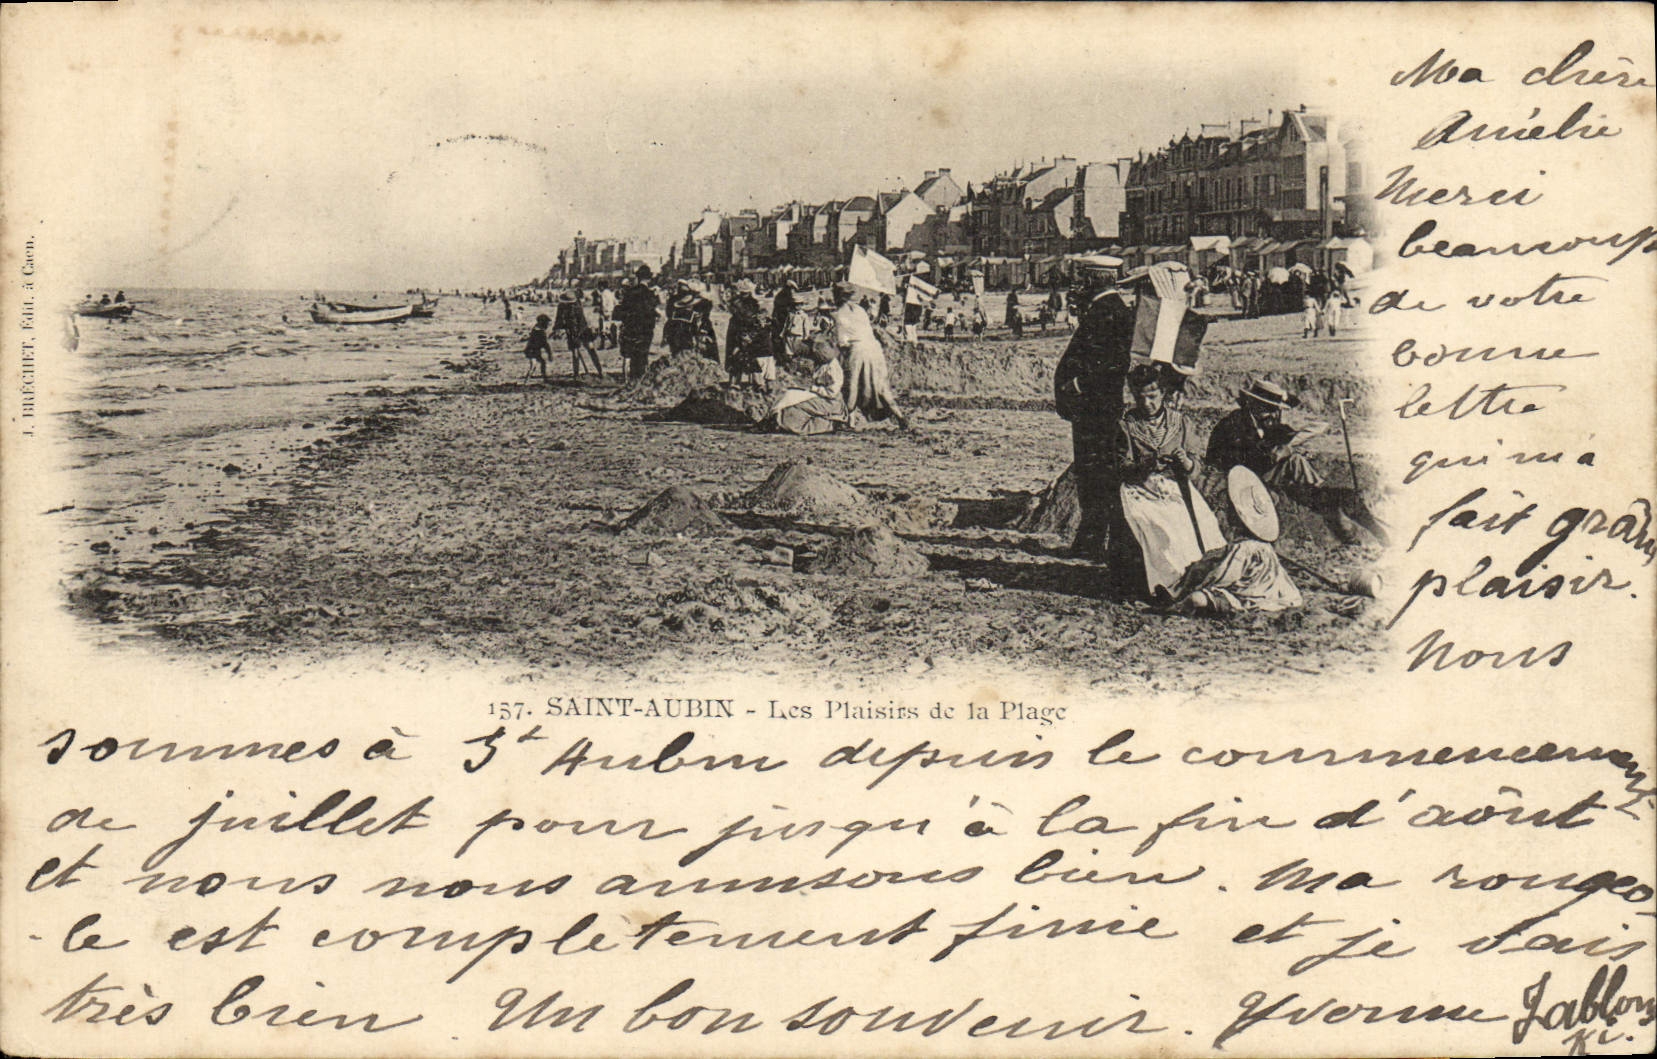 J. BRÉCHET, Édit. à Caen.
Ma chère
Amélie
Merci
beaucoup
de votre
bonne
lettre
qui m'a
fait grand
plaisir.
Nous
157. SAINT-AUBIN - Les Plaisirs de la Plage
sommes à St Aubin depuis le commencement
de juillet pour jusqu'à la fin d'août
et nous nous amusons bien. Ma rougeo-
-le est complètement finie et je vais
très bien. Un bon souvenir. Yvonne Jablons
ki.